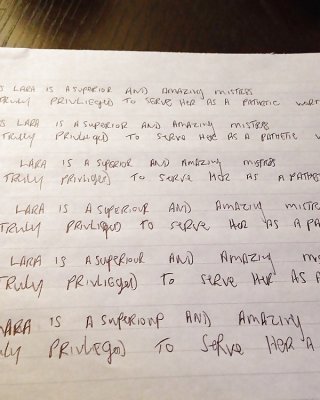 S LARA IS A SUPERIOR AND AMAZING MISTRESS
TRULY PRIVLIEGED TO SERVE HER AS A PATHETIC
S LARA IS A SUPERIOR AND AMAZING MISTRESS
TRULY PRIVLIEGED TO SERVE HER AS A PATHETIC
LARA IS A SUPERIOR AND AMAZING MISTRESS
TRULY PRIVLIGED TO SERVE HER AS A PATHE
LARA IS A SUPERIOUR AND AMAZING MIST
TRULY PRIVLIGED TO SERVE HER AS A PA
LARA IS A SUPERIOUR AND AMAZING MIS
TRULY PRIVLIGED TO SERVE HER AS A
LARA IS A SUPERIOUR AND AMAZING
ULY PRIVLEGED TO SERVE HER A